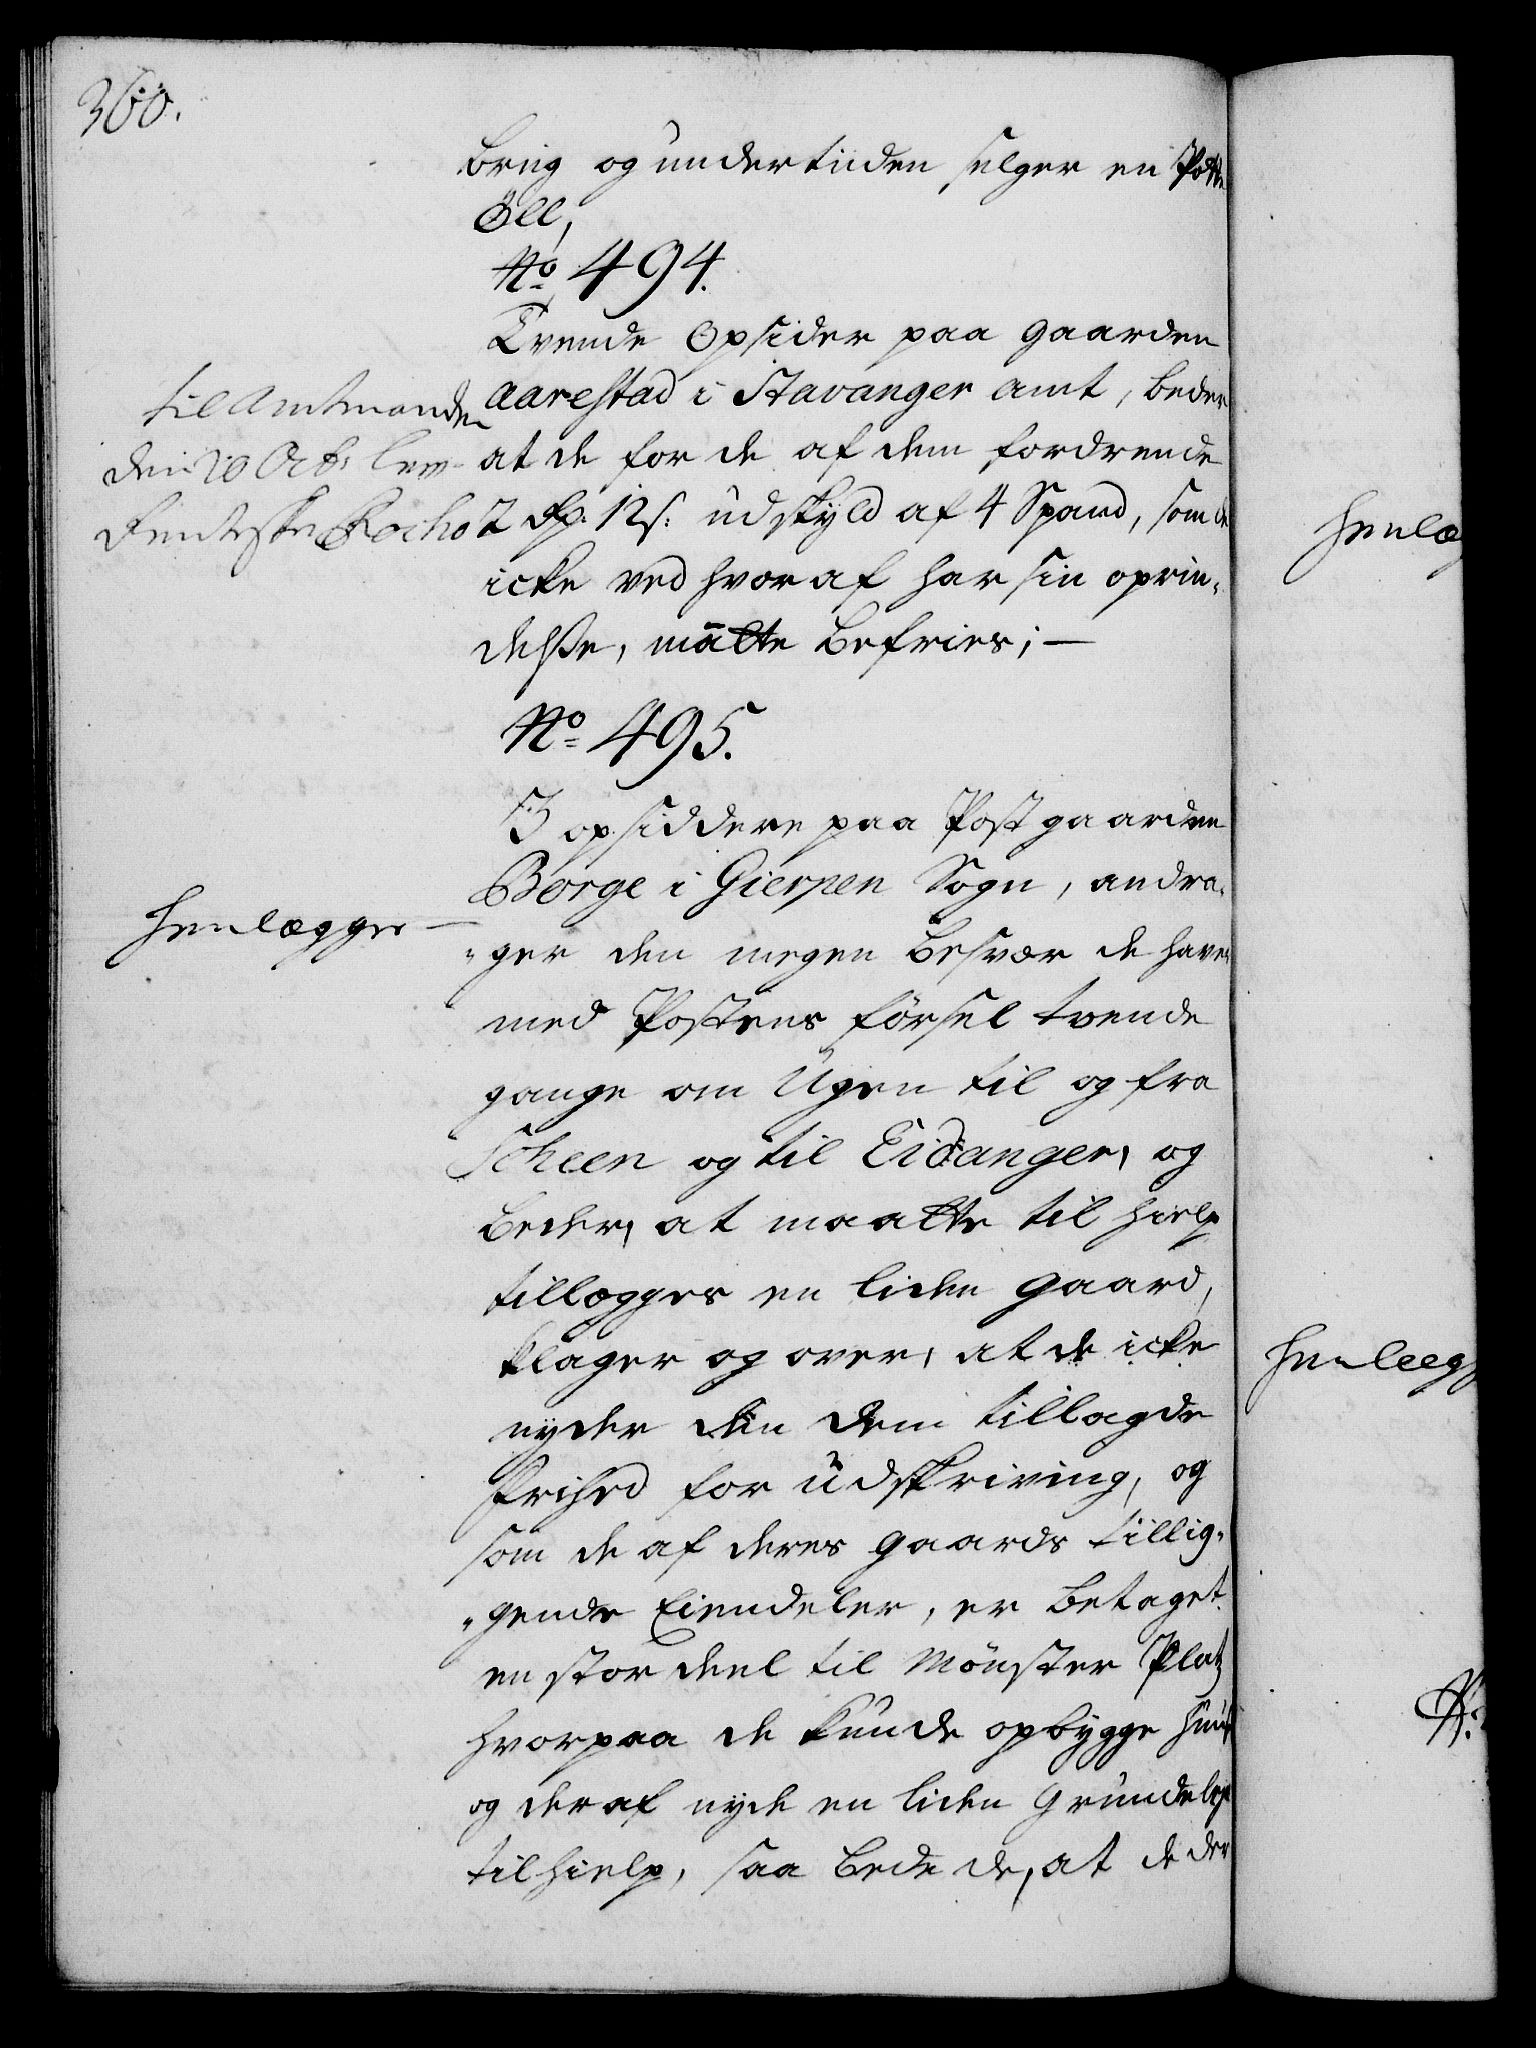 360.
brug og undertiiden selger en Potte
Öll,
No 494.
Tvende Opsider paa gaarden
Aarestad i Stavanger amt, beder
at de for de af dem fordrende
2 rdr. 12 s: udskyld af 4 Spand, som de
icke ved hvoraf har sin oprin-
delse, mätte befries; —
til Amtmanden
den 10 Octb:
No 495.
3 opsiddere paa Postgaarden
Borge i Gierpen Sogn, andra-
-ger den megen besvær de haver
med Postens försel tvende
gange om Ugen til og fra
Scheen og til Eidanger, og
beder, at maatte til hielp
tillægges en liden gaard,
klager og over, at de icke
nyder den dem tillagde
frihed for udskrivning, og
som de af deres gaards tillig-
-gende Eiendeler, er betaget
en stor deel til Mönster Platz
hvorpaa de kunde opbygge huuse
og deraf nyde en liden Grundeleye
til hielp, saa bede de, at de der
henlægges —
henlæg
henleeg